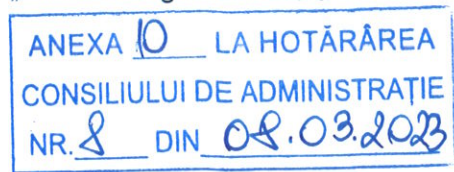 ANEXA 10 LA HOTĂRÂREA
CONSILIULUI DE ADMINISTRAȚIE
NR. 8 DIN 08.03.2023